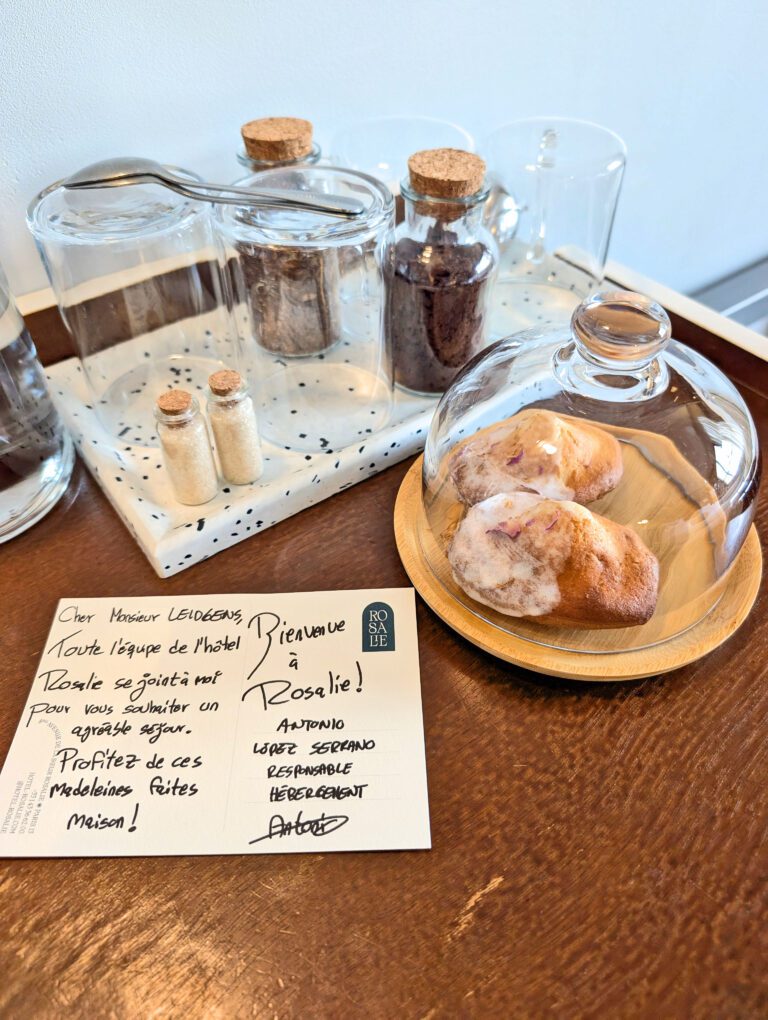 Cher Monsieur LEIDGENS,
Toute l'équipe de l'hôtel
Rosalie se joint à moi
pour vous souhaiter un
agréable séjour.
Profitez de ces
Madeleines faites
Maison!
Bienvenue
à
Rosalie!
ANTONIO
LÓPEZ SERRANO
RESPONSABLE
HÉBERGEMENT
Antonio
RO
SA
LIE